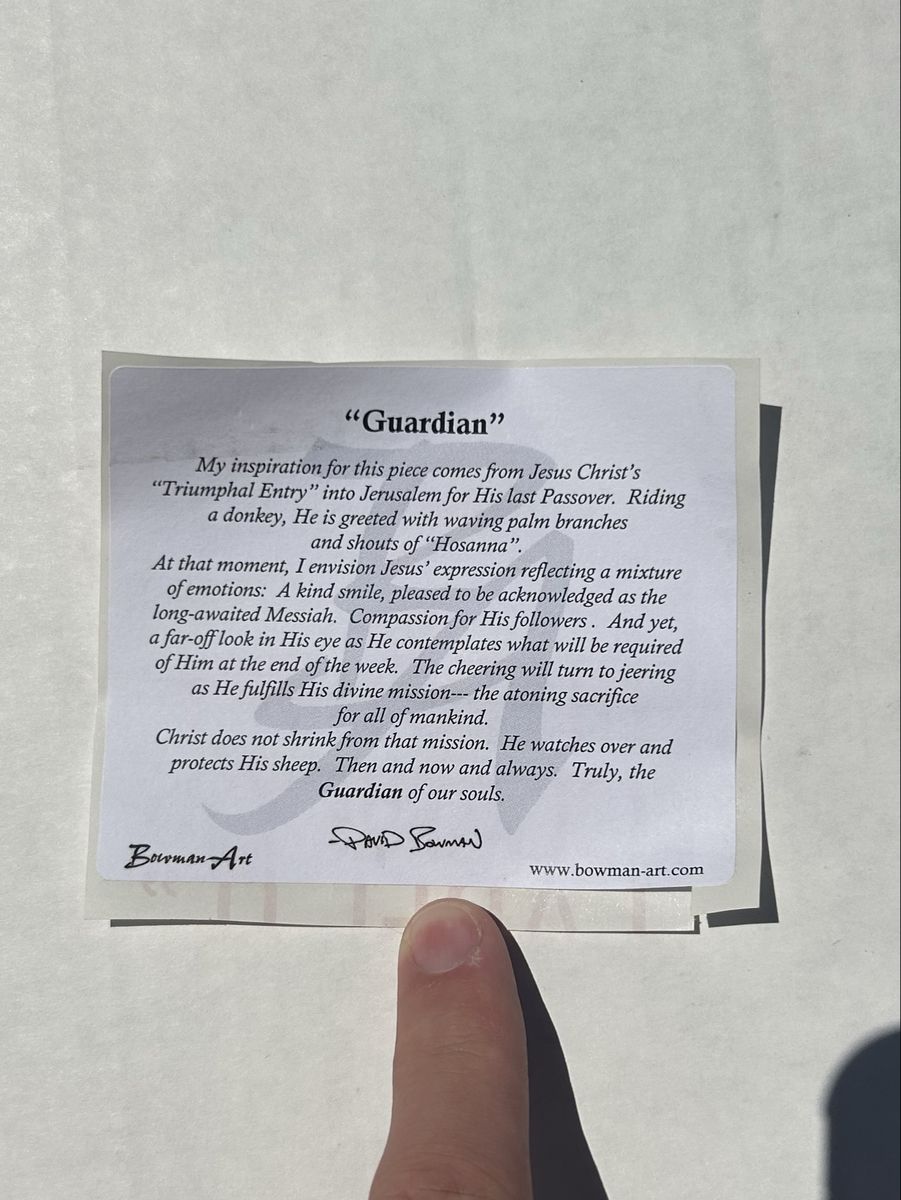 “Guardian”
My inspiration for this piece comes from Jesus Christ’s
“Triumphal Entry” into Jerusalem for His last Passover. Riding
a donkey, He is greeted with waving palm branches
and shouts of “Hosanna”.
At that moment, I envision Jesus’ expression reflecting a mixture
of emotions: A kind smile, pleased to be acknowledged as the
long-awaited Messiah. Compassion for His followers . And yet,
a far-off look in His eye as He contemplates what will be required
of Him at the end of the week. The cheering will turn to jeering
as He fulfills His divine mission--- the atoning sacrifice
for all of mankind.
Christ does not shrink from that mission. He watches over and
protects His sheep. Then and now and always. Truly, the
Guardian of our souls.
DAVID BOWMAN
Bowman-Art
www.bowman-art.com